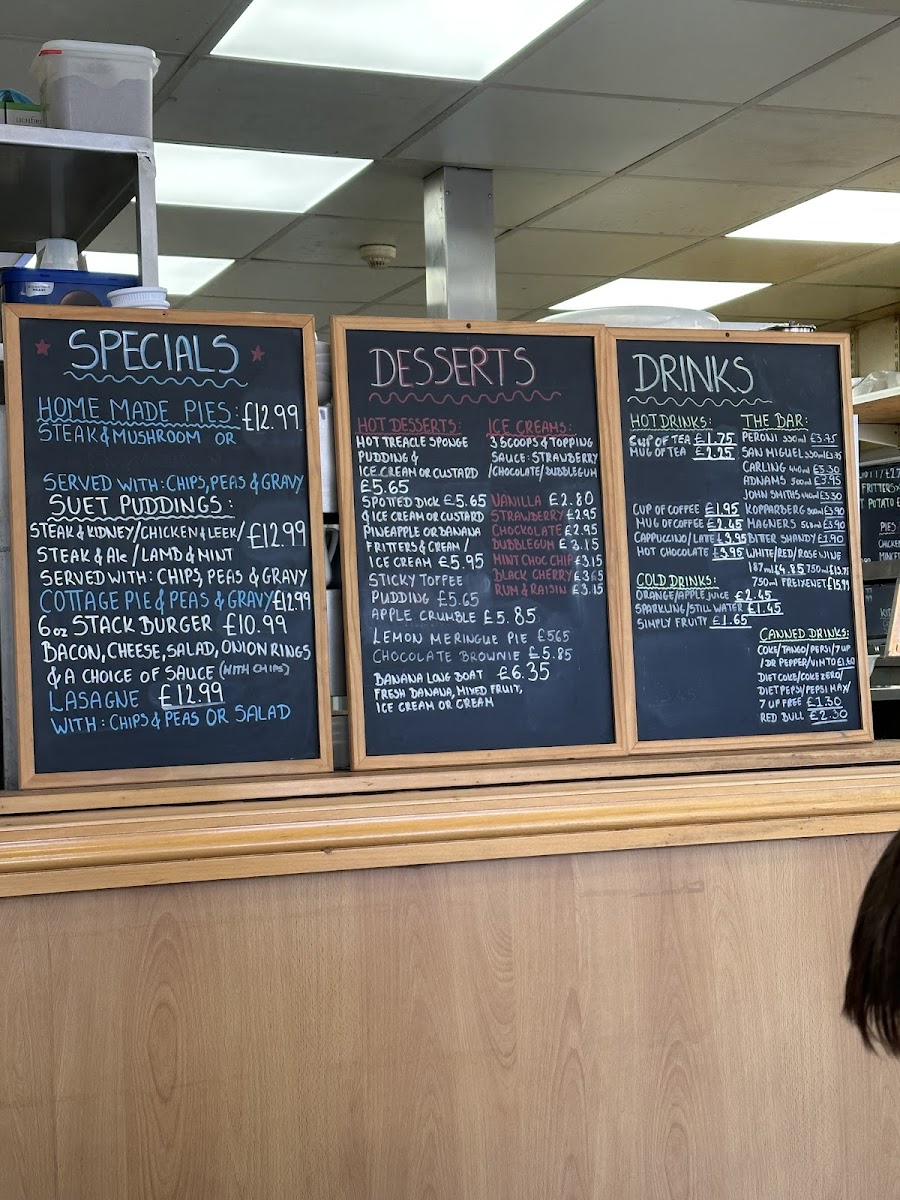 SPECIALS
HOME MADE PIES: £12.99
STEAK & MUSHROOM OR
SERVED WITH: CHIPS, PEAS & GRAVY
SUET PUDDINGS:
STEAK & KIDNEY/CHICKEN & LEEK/ £12.99
STEAK & Ale / LAMB & MINT
SERVED WITH: CHIPS, PEAS & GRAVY
COTTAGE PIE & PEAS & GRAVY £12.99
6oz STACK BURGER £10.99
BACON, CHEESE, SALAD, ONION RINGS
& A CHOICE OF SAUCE (WITH CHIPS)
LASAGNE £12.99
WITH: CHIPS & PEAS OR SALAD
DESSERTS
HOT DESSERTS:
HOT TREACLE SPONGE
PUDDING &
ICE CREAM OR CUSTARD
£5.65
SPOTTED DICK £5.65
& ICE CREAM OR CUSTARD
PINEAPPLE OR BANANA
FRITTERS & CREAM /
ICE CREAM £5.95
STICKY TOFFEE
PUDDING £5.65
APPLE CRUMBLE £5.85
LEMON MERINGUE PIE £565
CHOCOLATE BROWNIE £5.85
BANANA LONG BOAT £6.35
FRESH BANANA, MIXED FRUIT,
ICE CREAM OR CREAM
ICE CREAMS:
3 SCOOPS & TOPPING
SAUCE: STRAWBERRY
/CHOCOLATE/BUBBLEGUM
VANILLA £2.80
STRAWBERRY £2.95
CHOCKOLATE £2.95
BUBBLEGUM £3.15
MINT CHOC CHIP £3.15
BLACK CHERRY £3.65
RUM & RAISIN £3.15
DRINKS
HOT DRINKS:
CUP OF TEA £1.75
MUG OF TEA £2.25
CUP OF COFFEE £1.95
MUG OF COFFEE £2.45
CAPPUCCINO/LATE £3.95
HOT CHOCOLATE £3.95
COLD DRINKS:
ORANGE/APPLE JUICE £2.45
SPARKLING/STILL WATER £1.45
SIMPLY FRUITY £1.65
THE BAR:
PERONI 330ml £3.75
SAN MIGUEL 330ml £3.75
CARLING 440ml £3.30
ADNAMS 500ml £3.95
JOHN SMITHS 440ml £3.30
KOPPARBERG 500ml £3.90
MAGNERS 568ml £3.90
BITTER SHANDY £1.90
WHITE/RED/ROSE WINE
187ml £4.85 750ml £13.75
750ml FREIXENET £15.99
CANNED DRINKS:
COKE/TANGO/PEPSI/7UP
/DR PEPPER/VIMTO £1.60
DIET COKE/COKE ZERO/
DIET PEPSI/PEPSI MAX/
7 UP FREE £1.30
RED BULL £2.30
FRITTERS
PIES
CHICKEN